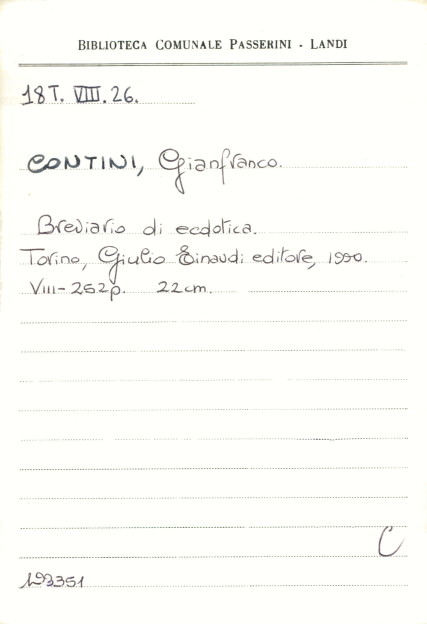 BIBLIOTECA COMUNALE PASSERINI - LANDI
18T. VIII. 26.
CONTINI, Gianfranco.
Breviario di ecdotica.
Torino, Giulio Einaudi editore, 1990.
VIII-252p. 22cm.
C
193351